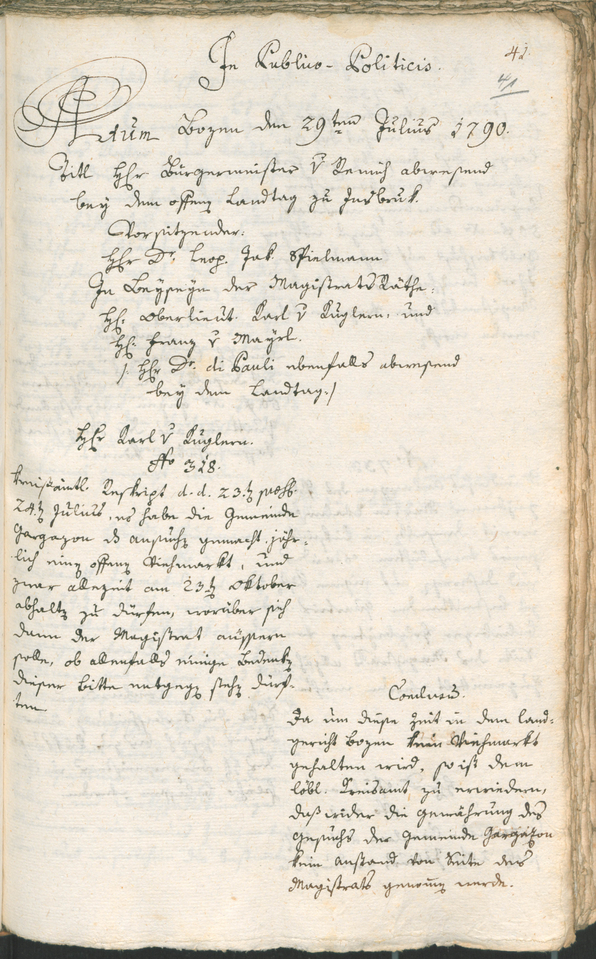 In Publico-Politicis.
41.
41
Actum Bozen den 29ten Julius 1790.
Titl Hhr Bürgermeister v Remich abwesend
bey dem offenen Landtag zu Insbruk.
Vorsitzender:
Hhr Dr. Leop. Jak. Spielmann
In Beyseyn der Magistrats Räthe,
Hh: Oberlieut. Karl v Kuglern, und
Hh: Franz v Mayrl.
/: Hhr Dr. di Pauli ebenfalls abwesend
bey dem Landtag :/
Hhr Karl v Kuglern.
No 318.
Kreisämtl. Reskript d. d. 23.t praes.
24.t Julius, es habe die Gemeinde
Gargazon ds Ansuchen gemacht, jähr-
lich einen offenen Viehmarkt, und
zwar allezeit am 23.t Oktober
abhalten zu dürfen, worüber sich
dann der Magistrat äussern
solle, ob allenfalls einige Bedenken
dieser Bitte entgegen stehen dürf-
ten
Conclusum.
Da um diese Zeit in dem Land-
gericht Bozen kein Viehmarkt
gehalten wird, so ist dem
löbl. Kreisamt zu erwiedern,
daß wider die Gewährung des
Gesuchs der Gemeinde Gargazon
kein Anstand von Seite des
Magistrats genommen werde.